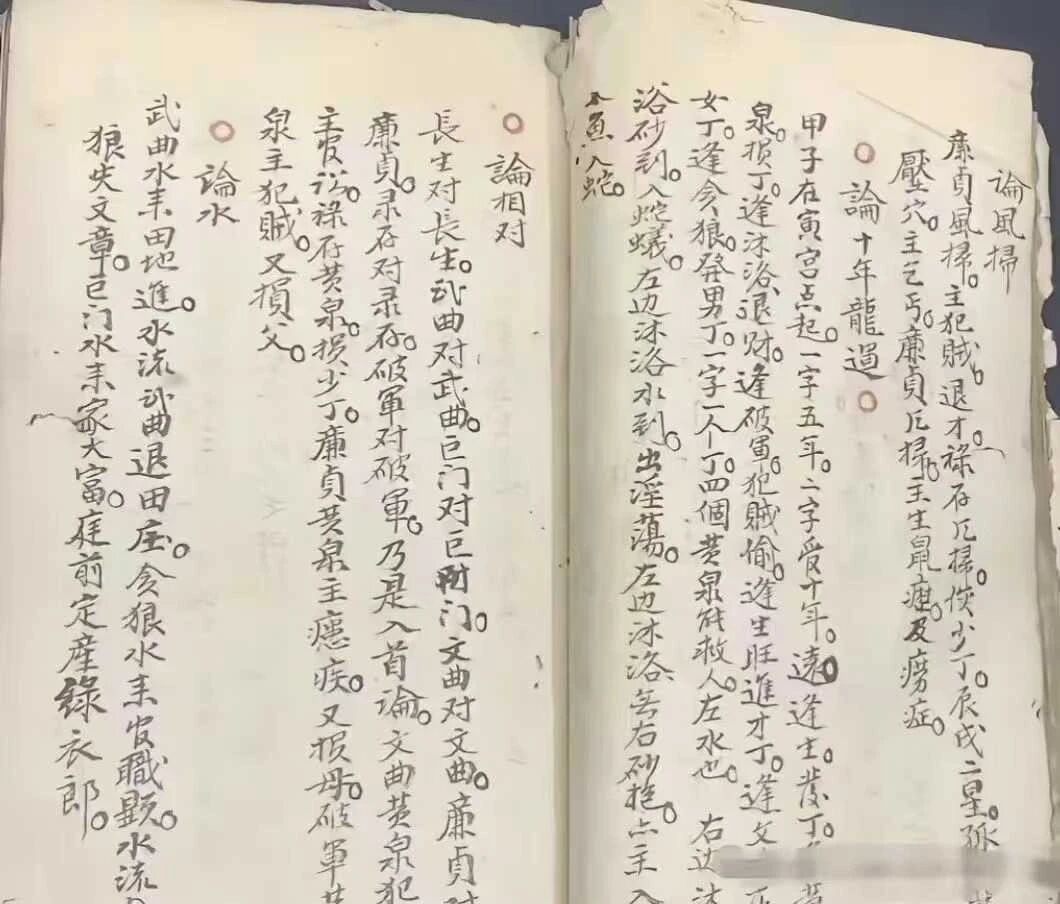 論風掃
廉貞風掃。主犯賊。退才。祿存凡掃。侯少丁。辰戌二星。孫
壓穴。主乞丐。廉貞凡掃。主生鼠痖。及癆症。
論十年龍過
甲子在寅宫点起。一字五年。二字受十年。逢生发丁。
泉。损丁。逢沐浴退财。逢破軍。犯賊偷。逢生旺進才丁。逢文
女丁。逢贪狼。發男丁。一字一个丁。四個黄泉能救人。左水也。右边沐
浴砂到。入蛇蟻。左边沐浴水到。出淫蕩。左边沐浴。兵右砂抱。亦主入
魚入蛇。
論相对
長生对長生。武曲对武曲。巨门对巨门。文曲对文曲。廉貞对
廉貞。录存对录存。破軍对破軍。乃是入首論。文曲黄泉犯
主官讼。祿存黄泉。损少丁。廉貞黄泉主瘾疾。又损母。破軍黄
泉主犯賊。又損父。
論水
武曲水耒田地進。水流武曲退田庄。贪狼水耒官職顯。水流
狼失文章。巨门水耒家大富。庭前定産綠衣郎。